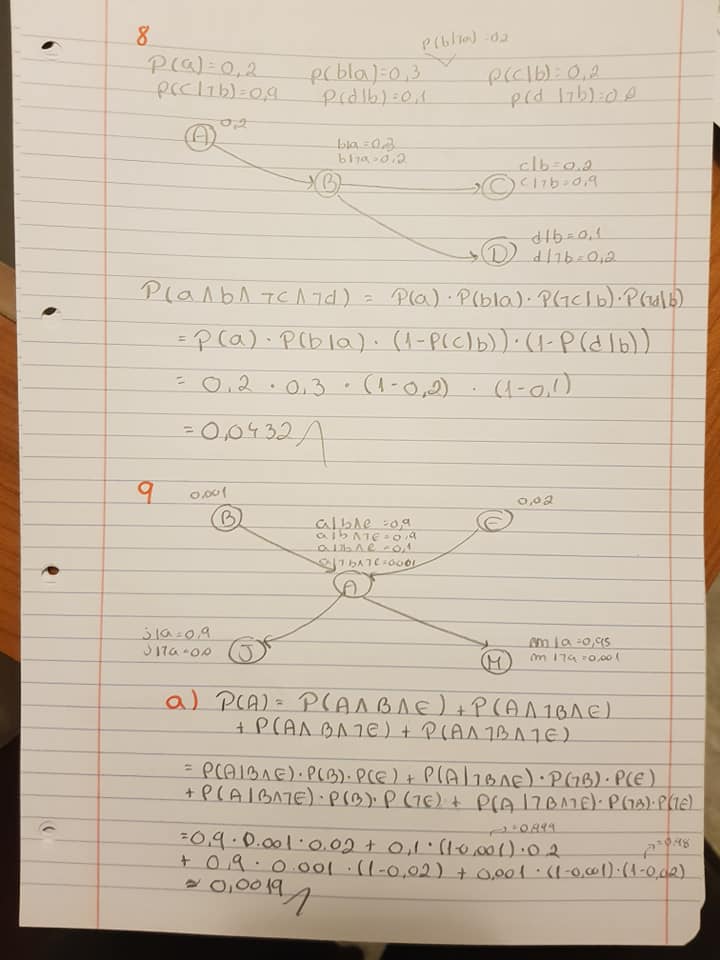 8
p(b|¬a)=0.2
P(a)=0,2 p(b|a)=0,3 p(c|b)=0,2
p(c|¬b)=0,9 p(d|b)=0,1 p(d|¬b)=
A 0,2
b|a=0.3
b|¬a=0.2
B
c|b=0.2
C c|¬b=0,9
d|b=0,1
D d|¬b=0,2
P(a∧b∧¬c∧¬d) = P(a)·P(b|a)·P(¬c|b)·P(¬d|b)
= P(a)·P(b|a)·(1-P(c|b))·(1-P(d|b))
= 0,2 · 0,3 · (1-0,2) · (1-0,1)
= 0,0432
9 0,001 0,02
B E
a|b∧e=0,9
a|b∧¬E=0,9
a|¬b∧e=0,1
a|¬b∧¬E=0.001
A
j|a=0,9
j|¬a=0.0 J
m|a=0,95
M m|¬a=0.001
a) P(A)= P(A∧B∧E)+P(A∧¬B∧E)
+ P(A∧B∧¬E) + P(A∧¬B∧¬E)
= P(A|B∧E)·P(B)·P(E) + P(A|¬B∧E)·P(¬B)·P(E)
+P(A|B∧¬E)·P(B)·P(¬E) + P(A|¬B∧¬E)·P(¬B)·P(¬E)
=0,999
=0.9·0.001·0.02 + 0,1·(1-0,001)·0.2
=0.98
+ 0,9·0.001·(1-0,02) + 0,001·(1-0,001)·(1-0,02)
≈ 0,0019